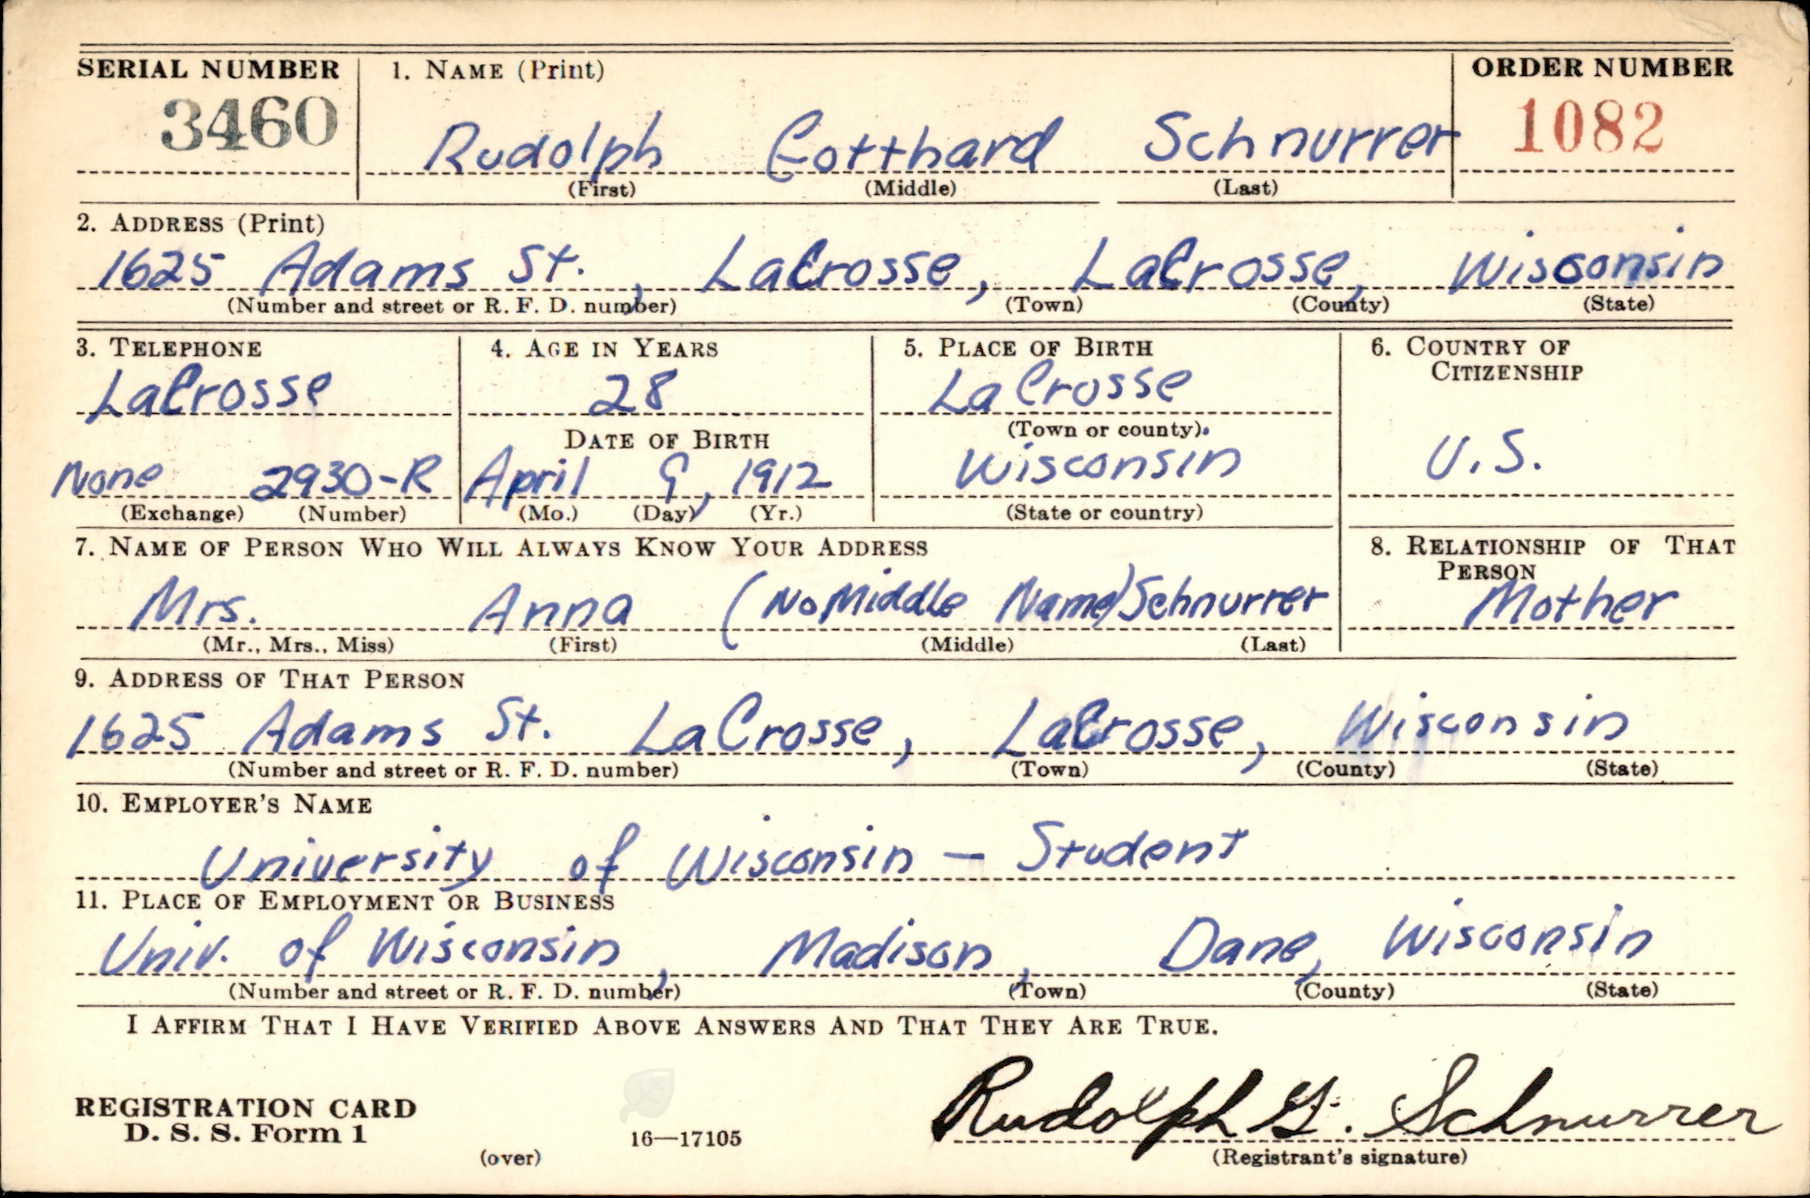 SERIAL NUMBER 1. NAME (Print) ORDER NUMBER
3460 Rudolph Gotthard Schnurrer 1082
(First) (Middle) (Last)
2. ADDRESS (Print)
1625 Adams St., LaCrosse, LaCrosse, Wisconsin
(Number and street or R. F. D. number) (Town) (County) (State)
3. TELEPHONE 4. AGE IN YEARS 5. PLACE OF BIRTH 6. COUNTRY OF CITIZENSHIP
LaCrosse 28 LaCrosse
DATE OF BIRTH (Town or county)
None 2930-R April 9, 1912 Wisconsin U.S.
(Exchange) (Number) (Mo.) (Day) (Yr.) (State or country)
7. NAME OF PERSON WHO WILL ALWAYS KNOW YOUR ADDRESS 8. RELATIONSHIP OF THAT PERSON
Mrs. Anna (No Middle Name) Schnurrer Mother
(Mr., Mrs., Miss) (First) (Middle) (Last)
9. ADDRESS OF THAT PERSON
1625 Adams St. LaCrosse, LaCrosse, Wisconsin
(Number and street or R. F. D. number) (Town) (County) (State)
10. EMPLOYER'S NAME
University of Wisconsin — Student
11. PLACE OF EMPLOYMENT OR BUSINESS
Univ. of Wisconsin, Madison, Dane, Wisconsin
(Number and street or R. F. D. number) (Town) (County) (State)
I AFFIRM THAT I HAVE VERIFIED ABOVE ANSWERS AND THAT THEY ARE TRUE.
REGISTRATION CARD Rudolph G. Schnurrer
D. S. S. Form 1 16—17105
(over) (Registrant's signature)